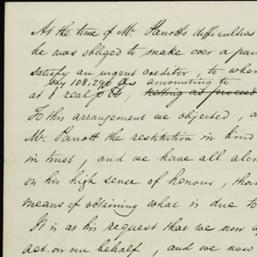 At the time of Mr. Parrott's difficulties
he was obliged to make over a par
satisfy an urgent creditor, to whom
say 108,296 amounting to
at 1 real
To this arrangement we objected, a
Mr. Parrott the restitution in kind
in trust, and we have all alon
on his high sense of honour, thou
means of obtaining what is due to
It is at his request that we now a
act on our behalf, and we now